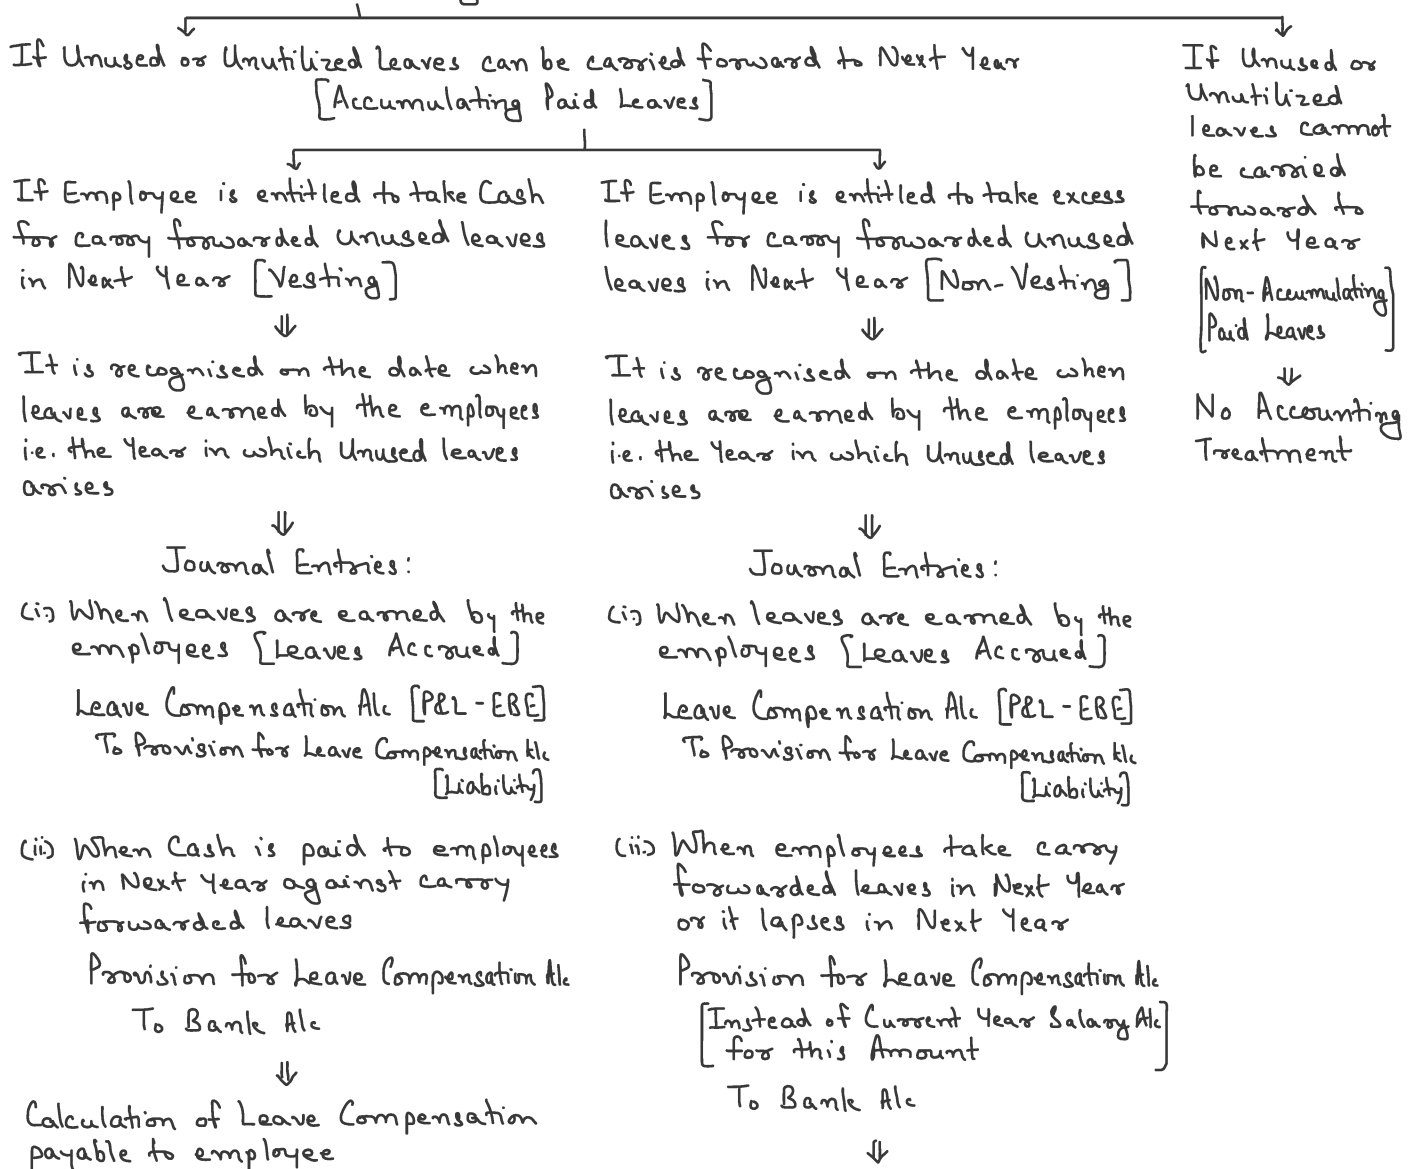 If Unused or Unutilized Leaves can be carried forward to Next Year
[Accumulating Paid Leaves]
If Employee is entitled to take Cash
for carry forwarded unused leaves
in Next Year [Vesting]
⇓
It is recognised on the date when
leaves are earned by the employees
i.e. the Year in which Unused leaves
arises
⇓
Journal Entries:
(i) When leaves are earned by the
employees [Leaves Accrued]
Leave Compensation A/c [P&L - EBE]
To Provision for Leave Compensation A/c
[Liability]
(ii) When Cash is paid to employees
in Next Year against carry
forwarded leaves
Provision for Leave Compensation A/c
To Bank A/c
⇓
Calculation of Leave Compensation
payable to employee
If Employee is entitled to take excess
leaves for carry forwarded unused
leaves in Next Year [Non-Vesting]
⇓
It is recognised on the date when
leaves are earned by the employees
i.e. the Year in which Unused leaves
arises
⇓
Journal Entries:
(i) When leaves are earned by the
employees [Leaves Accrued]
Leave Compensation A/c [P&L - EBE]
To Provision for Leave Compensation A/c
[Liability]
(ii) When employees take carry
forwarded leaves in Next Year
or it lapses in Next Year
Provision for Leave Compensation A/c
[Instead of Current Year Salary A/c
for this Amount]
To Bank A/c
⇓
If Unused or
Unutilized
leaves cannot
be carried
forward to
Next Year
[Non-Accumulating
Paid Leaves]
⇓
No Accounting
Treatment